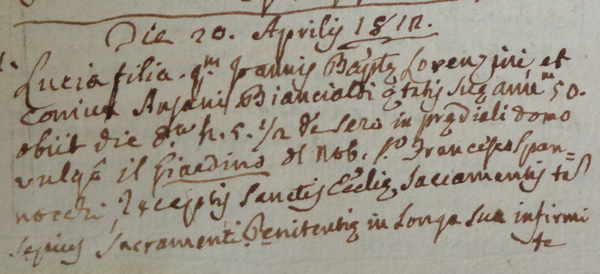 Die 20. Aprilis 1812.
Lucia filia qm Joannis Baptæ Lorenzini et
coniux Anjani Biancialdi ætatis suæ annm 50.
obiit die dta h. 5. 1/2 de sero in prædiali domo
vulgo il Giardino del Nob. Sr. Francesco Span=
nocchi, receptis Sanctis Ecclïæ Sacramentis et
sepius Sacramenti Penitentiæ in longa sua infirmi
te